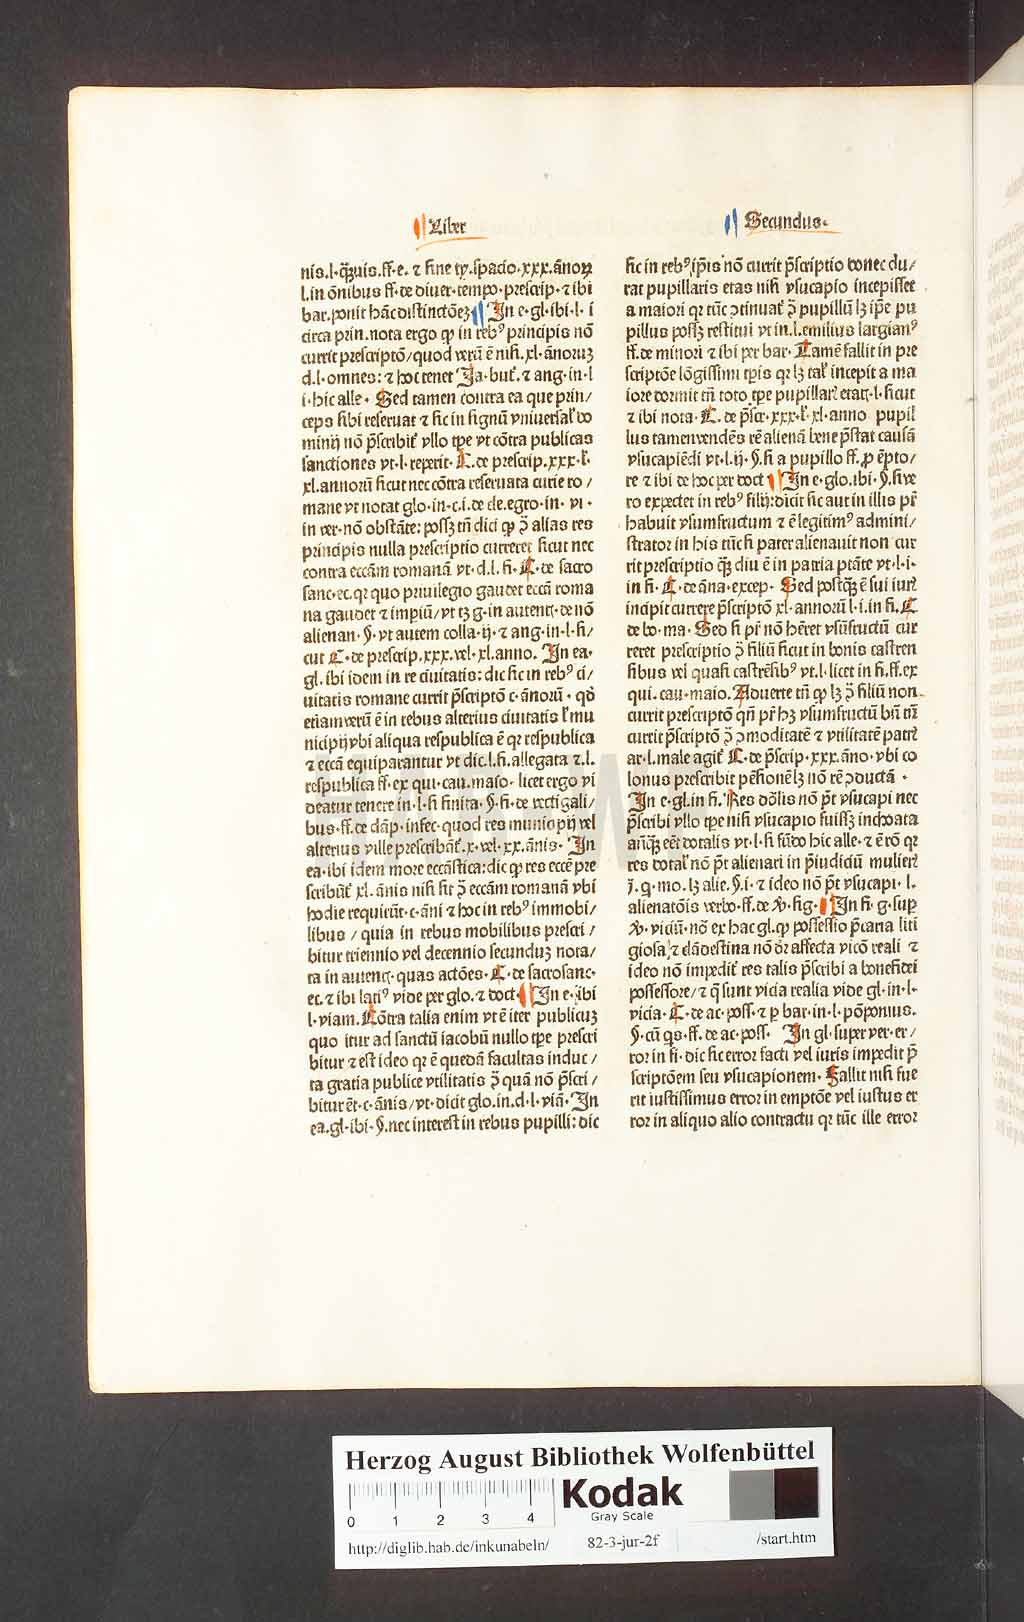 Liber
Secundus.
nis.l.q̄ꝫuis.ff.e. ⁊ fine tp̄.spacio.xxx.ānoꝝ
l.in ōnibus ff.de diuer.tempo.prescrip.⁊ ibi
bar.ponit hāc distinctōeꝫ In e.gl.ibi.l.i
circa prin.nota ergo ꝙ in rebꝰ principis nō
currit prescriptō/quod verū ē nisi.xl.ānoruꝫ
d.l.omnes:⁊ hoc tenet Ja.but̄.⁊ ang.in.l
i.hic alle. Sed tamen contra ea que prin/
ceps sibi reseruat ⁊ sic in signū vniuersal' do
minij nō p̄scribit᷑ vllo tp̄e vt cōtra publicas
sanctiones vt.l.reperit. C.de prescrip.xxx.l'.
xl.annorū sicut nec cōtra reseruata curie ro/
mane vt notat glo.in.c.i.de cle.egro.in.vi.
in ver.nō obstāte: possꝫ tn̄ dici ꝙ ꝯ̄ alias res
principis nulla prescriptio curreret sicut nec
contra eccām romanā vt.d.l.fi. C.de sacro
sanc.ec.qr quo priuilegio gaudet eccā roma
na gaudet ⁊ impiū/vt tꝫ g.in autent̄.de nō
alienan.§.vt autem colla.ij.⁊ ang.in.l.si/
cut C.de prescrip.xxx.vel.xl.anno. In ea.
gl.ibi idem in re ciuitatis:dic sic in rebꝰ ci/
uitatis romane currit p̄scriptō c.ānorū.qd̄
etiam verū ē in rebus alterius ciuitatis l' mu
nicipij vbi aliqua respublica ē qr respublica
⁊ eccā equiparantur vt dic.l.fi.allegata ⁊.l.
respublica ff.ex qui.cau.maio. licet ergo vi
deatur tenere in.l.si finita.§.si.de vectigali/
bus.ff.de dāp.infec.quod res municipij vel
alterius ville prescribāt᷑.x.vel.xx.ānis. In
ea.ibi idem more eccāstica:dic ꝙ res eccē pre
scribūt᷑ xl.ānis nisi sit ꝯ̄ eccām romanā vbi
hodie requirūt᷑.c.āni ⁊ hoc in rebꝰ immobi/
libus/quia in rebus mobilibus prescri/
bitur triennio vel decennio secunduꝫ nota/
ta in autent̄.quas actōes. C.de sacrosanc.
ec.⁊ ibi latiꝰ vide per glo.⁊ doct. In e.ibi
l.viam.Cōtra talia enim vt ē iter publicuꝫ
quo itur ad sanctū iacobū nullo tp̄e prescri
bitur ⁊ est ideo qr ē quedā facultas induc/
ta gratia publice vtilitatis ꝯ̄ quā nō p̄scri/
bitur et̄.c.ānis/vt.dicit glo.in.d.l.viā. In
ea.gl.ibi.§.nec interest in rebus pupilli:dic
sic in rebꝰ ip̄is nō currit p̄scriptio donec du/
rat pupillaris etas nisi vsucapio incepisset
a maiori qr tūc ꝯtinuat᷑ ꝯ̄ pupillū lꝫ ip̄e pu
pillus possꝫ restitui vt in.l.emilius largianꝰ
ff.de minori ⁊ ibi per bar. Tamē fallit in pre
scriptōe lōgissimi tp̄is qr lꝫ tal' incepit a ma
iore dormit tn̄ toto tp̄e pupillar̄ etat̄.l.sicut
⁊ ibi nota. C.de p̄scr.xxx.l'.xl.anno pupil
lus tamen vendēs rē alienā bene p̄stat causā
vsucapiēdi vt.l.ij.§.si a pupillo ff.ꝓ ēpto/
re ⁊ ibi de hoc per doct In e.glo.ibi.§.siue
ro expectet in rebꝰ filij:dicit sic aut in illis pr̄
habuit vsumfructum ⁊ ē legitimꝰ admini/
strator in his tūc si pater alienauit non cur
rit prescriptio q̄ꝫ diu ē in patria ptāte vt.l.i.
in fi. C.de āna.excep. Sed postq̄ꝫ ē sui iur̄
incipit currere p̄scriptō xl.annorū l.i.in fi. C
de bo.ma. Sed si pr̄ nō hēret vsūfructū cur
reret prescriptio ꝯ̄ filiū sicut in bonis castren
sibus vel quasi castrēsibꝰ vt.l.licet in fi.ff.ex
qui.cau.maio. Aduerte tn̄ ꝙ lꝫ ꝯ̄ filiū non
currit prescriptō qn̄ pr̄ hꝫ vsumfructū bn̄ tn̄
currit p̄scriptō ꝯ̄ ꝯmoditatē ⁊ vtilitatē patr̄
ar.l.male agit᷑ C.de p̄scrip.xxx.āno.vbi co
lonus prescribit pēsionē lꝫ nō rē ꝯductā.
In e.gl.in fi. Res dōlis nō pt̄ vsucapi nec
p̄scribi vllo tp̄e nisi vsucapio fuissꝫ inchoata
anq̄ꝫ eēt dotalis vt.l.si fūdo hic alle.⁊ ē rō qr
res dotal' nō pt̄ alienari in p̄iudiciū mulier̄
j.q.mo.lꝫ alie.§.i.⁊ ideo nō pt̄ vsucapi.l.
alienatōis verbo.ff.de v̄.sig. In fi.g.sup
v̄.viciū.nō ex hac gl.ꝙ possessio p̄caria liti
giosa/⁊ clādestina nō dr̄ affecta vicō reali ⁊
ideo nō impedit᷑ res talis p̄scribi a bonefidei
possessore/⁊ q̄ sunt vicia realia vide gl.in.l.
vicia. C.de ac.poss.⁊ p bar.in.l.pōponius.
§.cū qs.ff.de ac.poss. In gl.super ver.er/
ror in fi.dic sic error facti vel iuris impedit p̄
scriptōem seu vsucapionem. Fallit nisi fue
rit iustissimus error in emptōe vel iustus er
ror in aliquo alio contractu qr tūc ille error
HAB WF
Herzog August Bibliothek Wolfenbüttel
0 1 2 3 4
Kodak
Gray Scale
http://diglib.hab.de/inkunabeln/ 82-3-jur-2f /start.htm